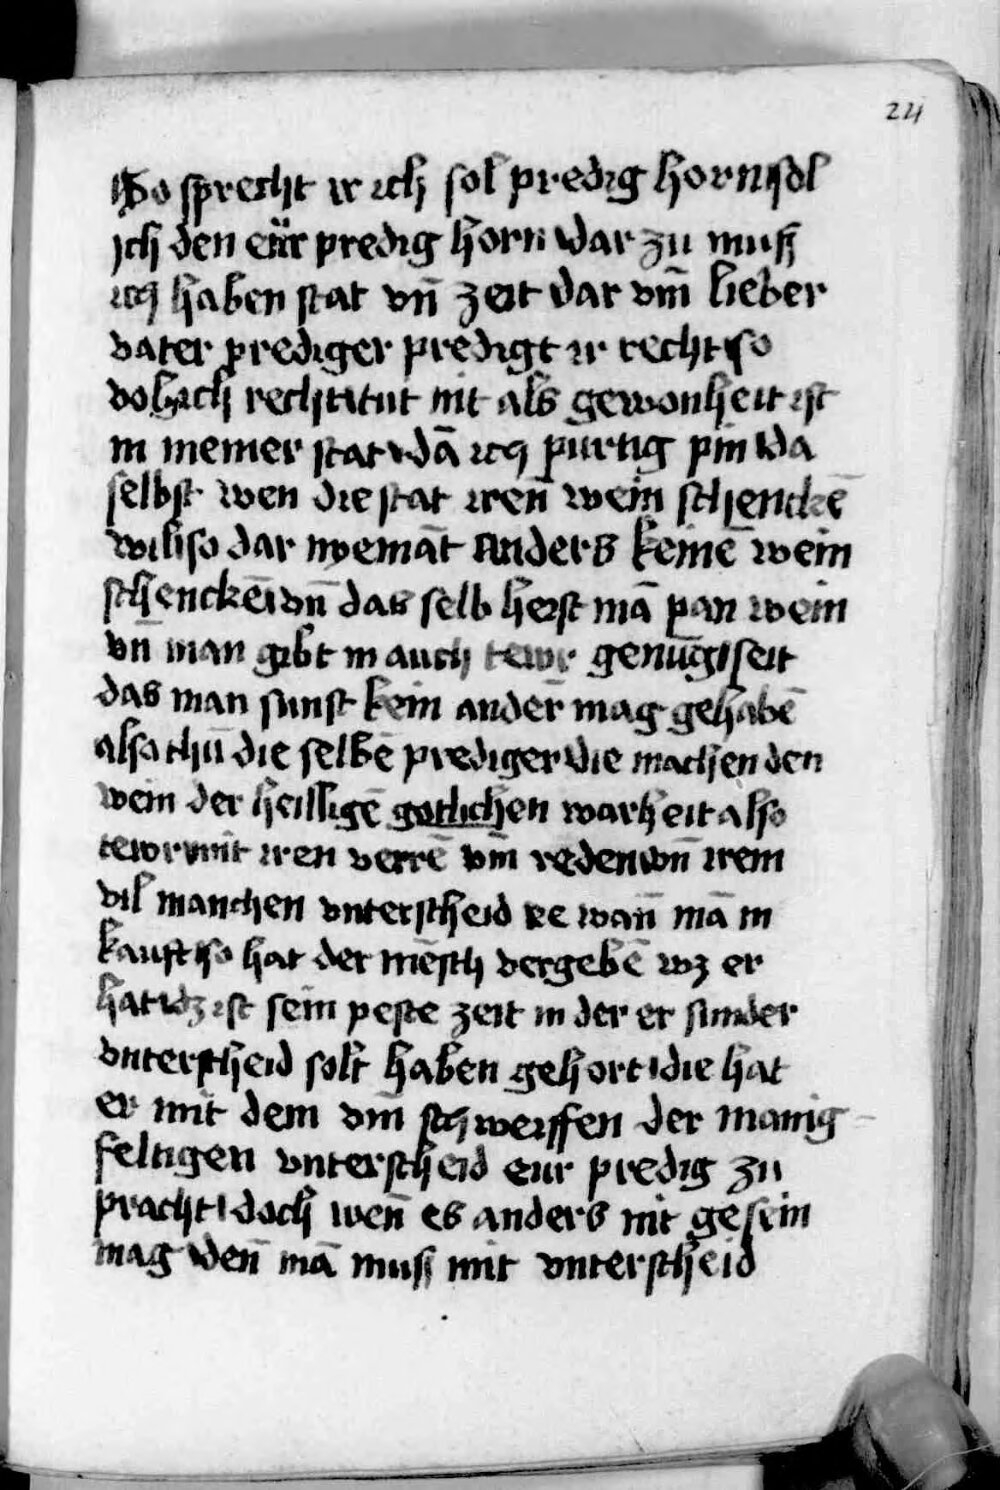 24
So sprecht ir ich sol predig horn sol
ich den eür predig horn dar zu muß
ich haben stat vn̄ zeit dar vm̄ lieber
vater prediger predigt ir recht so
volg ich recht tut nit als gewonheit ist
in meiner stat dā ich purtig pin da
selbst wen die stat iren̄ wein schenckē
wil so dar nyemāt anders keinē wein
schenckē vn̄ das selb heist mā pan wein
vn̄ man gibt in auch tewr genūg seit
das man sunst kein ander̄ mag gehabē
also thū die selbē prediger die machen den
wein der heilligē gotlichen warheit also
tewr mit iren verrē vm̄ reden vn̄ irem
vil manchen vnterscheid ee wan̄ mā in
kauft so hat der mēsch vergebē wz er
hat dz ist sein peste zeit in der er sunder
vnterscheid solt haben gehort die hat
er mit dem vm̄ schweiffen der manig
feltigen vnterscheid eur predig zu
pracht doch wen̄ es anders nit gesein
mag den̄ mā muß mit vnterscheid